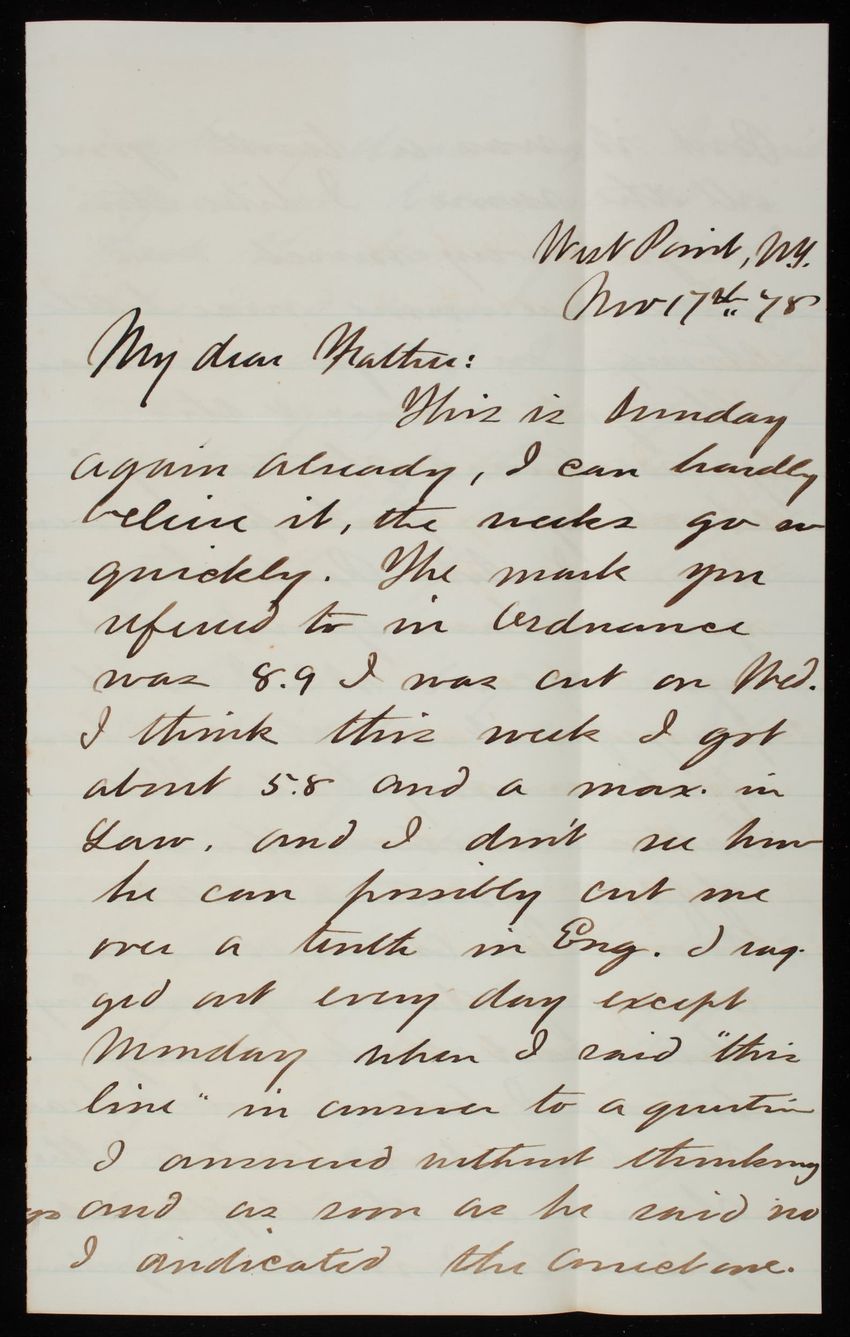 West Point, N.Y.
Nov 17th 78
My dear Father:
This is Sunday
again already, I can hardly
believe it, the weeks go so
quickly. The mark you
refered to in Ordnance
was 8.9 I was cut on Wed.
I think this week I got
about 5.8 and a max. in
Law, and I don't see how
he can possibly cut me
over a tenth in Eng. I rag-
ged out every day except
Monday when I said "this
line" in answer to a question
I answered without thinking
and as soon as he said no
I indicated the correct one.